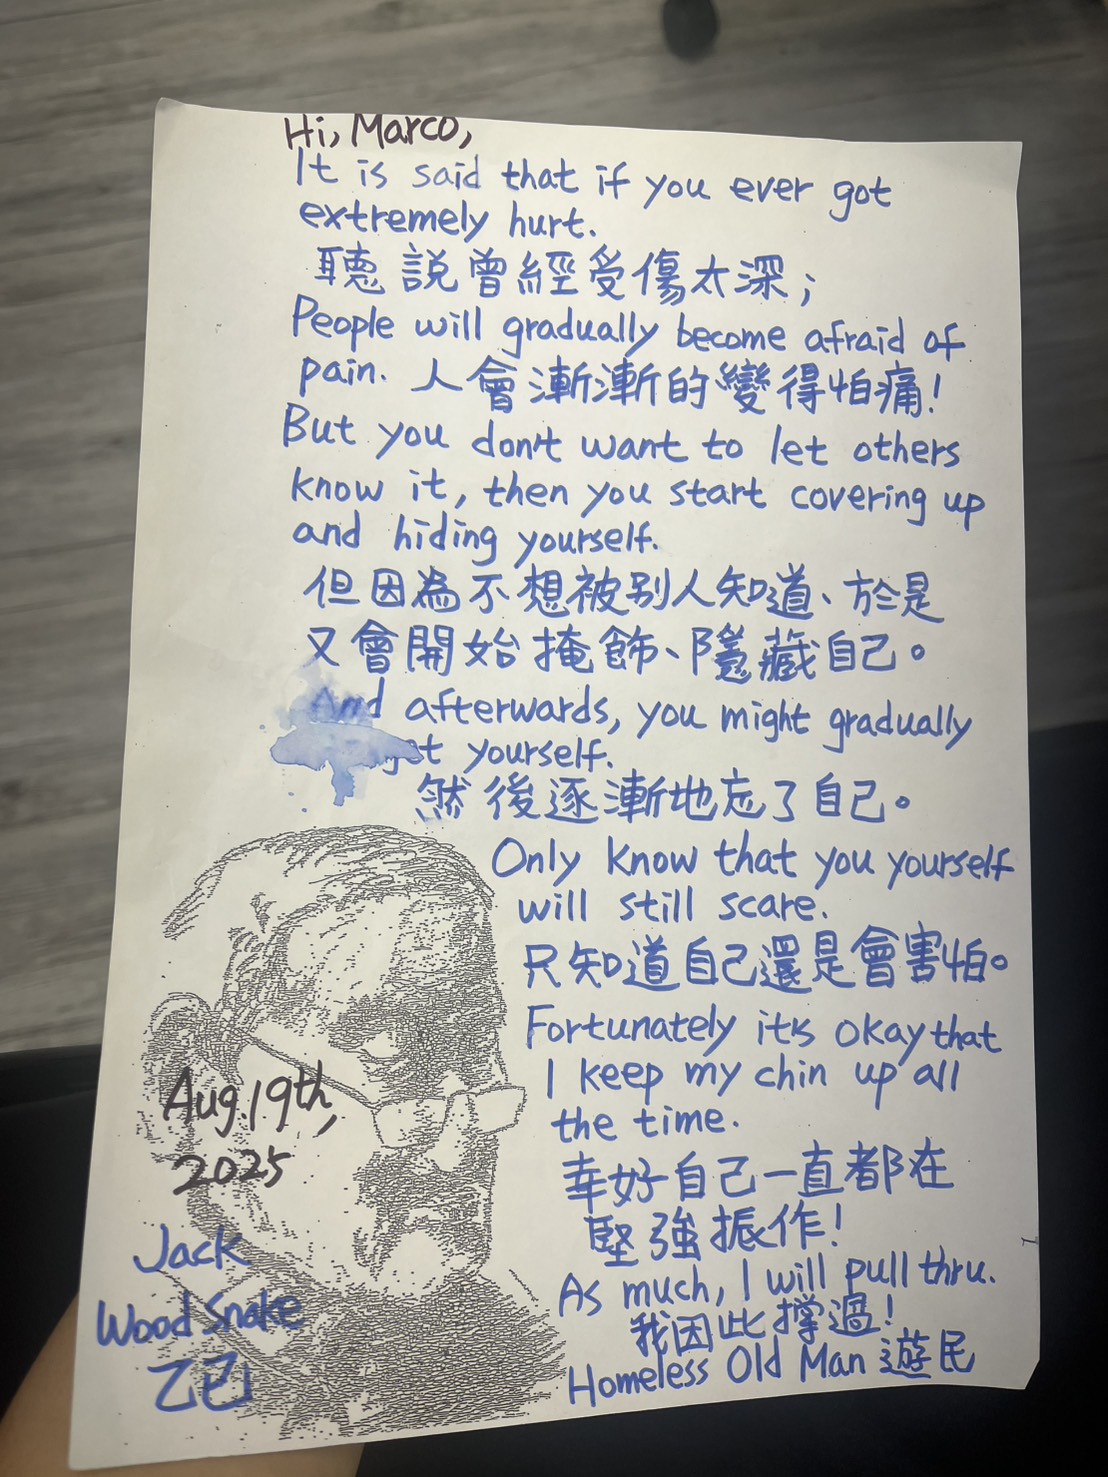 Hi, Marco,
It is said that if you ever got
extremely hurt.
聽說曾經受傷太深；
People will gradually become afraid of
pain. 人會漸漸的變得怕痛！
But you don't want to let others
know it, then you start covering up
and hiding yourself.
但因為不想被別人知道、於是
又會開始掩飾、隱藏自己。
And afterwards, you might gradually
yourself.
然後逐漸地忘了自己。
Only know that you yourself
will still scare.
只知道自己還是會害怕。
Fortunately it's okay that
I keep my chin up all
the time.
幸好自己一直都在
堅強振作！
As much, I will pull thru.
我因此撐過！
Homeless Old Man 遊民
Aug. 19th,
2025
Jack
Wood Snake
乙巳